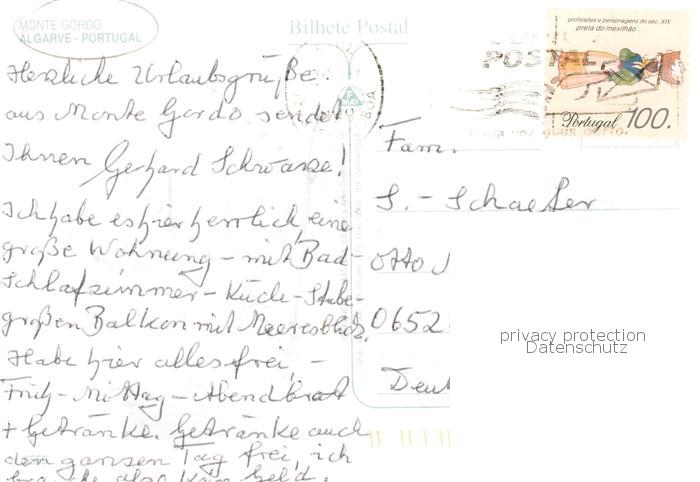 MONTE GORDO
ALGARVE - PORTUGAL
Bilhete Postal
profissões e personagens do séc. XIX
preta do mexilhão
Portugal 100.
POSTAL
Herzliche Urlaubsgrüße
aus Monte Gordo sendet
Ihnen Gerhard Schwarze!
Ich habe es hier herrlich, eine
große Wohnung - mit Bad -
Schlafzimmer - Küche - Stube -
großen Balkon mit Meeresblick.
Habe hier alles frei, -
Früh - Mittag - Abendbrot
+ Getränke. Getränke auch
den ganzen Tag frei, ich
also kein Geld.
Fam.
S. - Schaefer
Otto
0652
Deut
privacy protection
Datenschutz